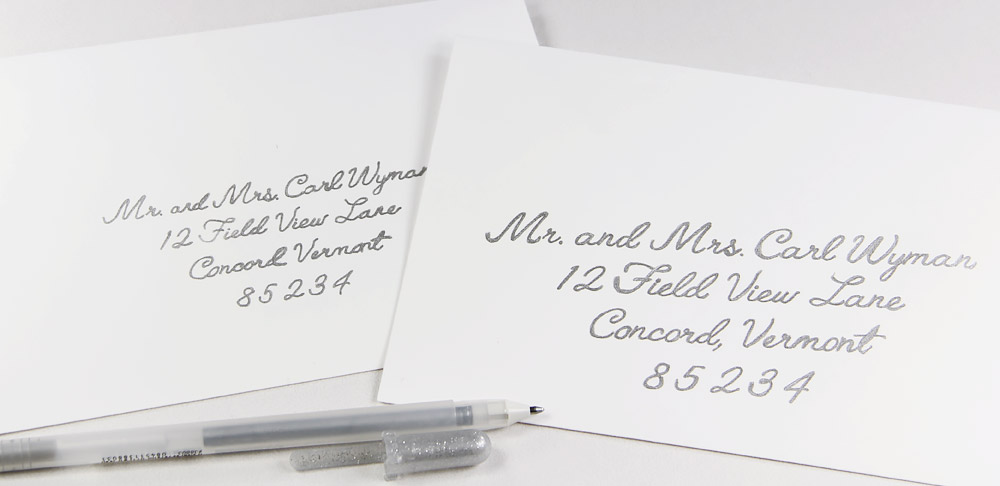 Mr. and Mrs. Carl Wyman
12 Field View Lane
Concord Vermont
85234
Mr. and Mrs. Carl Wyman
12 Field View Lane
Concord, Vermont
85234